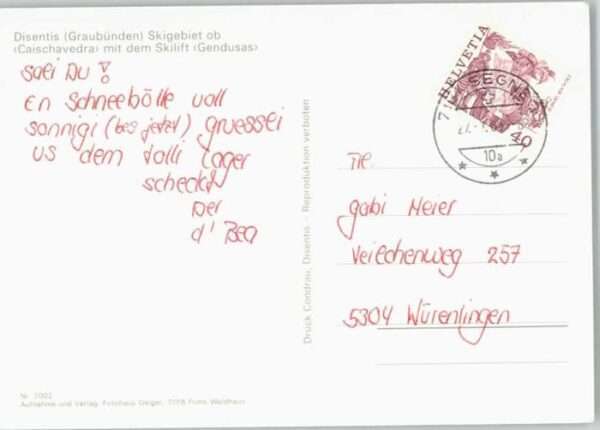 Disentis (Graubünden) Skigebiet ob
‹Caischavedra› mit dem Skilift ‹Gendusas›
Sali Du !
En Schneebölle voll
sonnigi (bes jetzt) gruessli
us dem tolle Lager
scheckt
Der
d' Bea
HELVETIA
40
SEGNES
10a
Druck Condrau, Disentis - Reproduktion verboten
Gabi Meier
Veielchenweg 257
5304 Würenlingen
Nr. 1002
Aufnahme und Verlag: Fotohaus Geiger, 7018 Flims Waldhaus